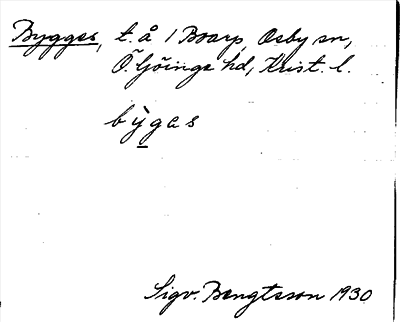 Bygges, t. å 1 Boarp, Osby sn,
Ö. Göinge hd, Krist. l.
bỳgas
Sigv. Bengtsson 1930